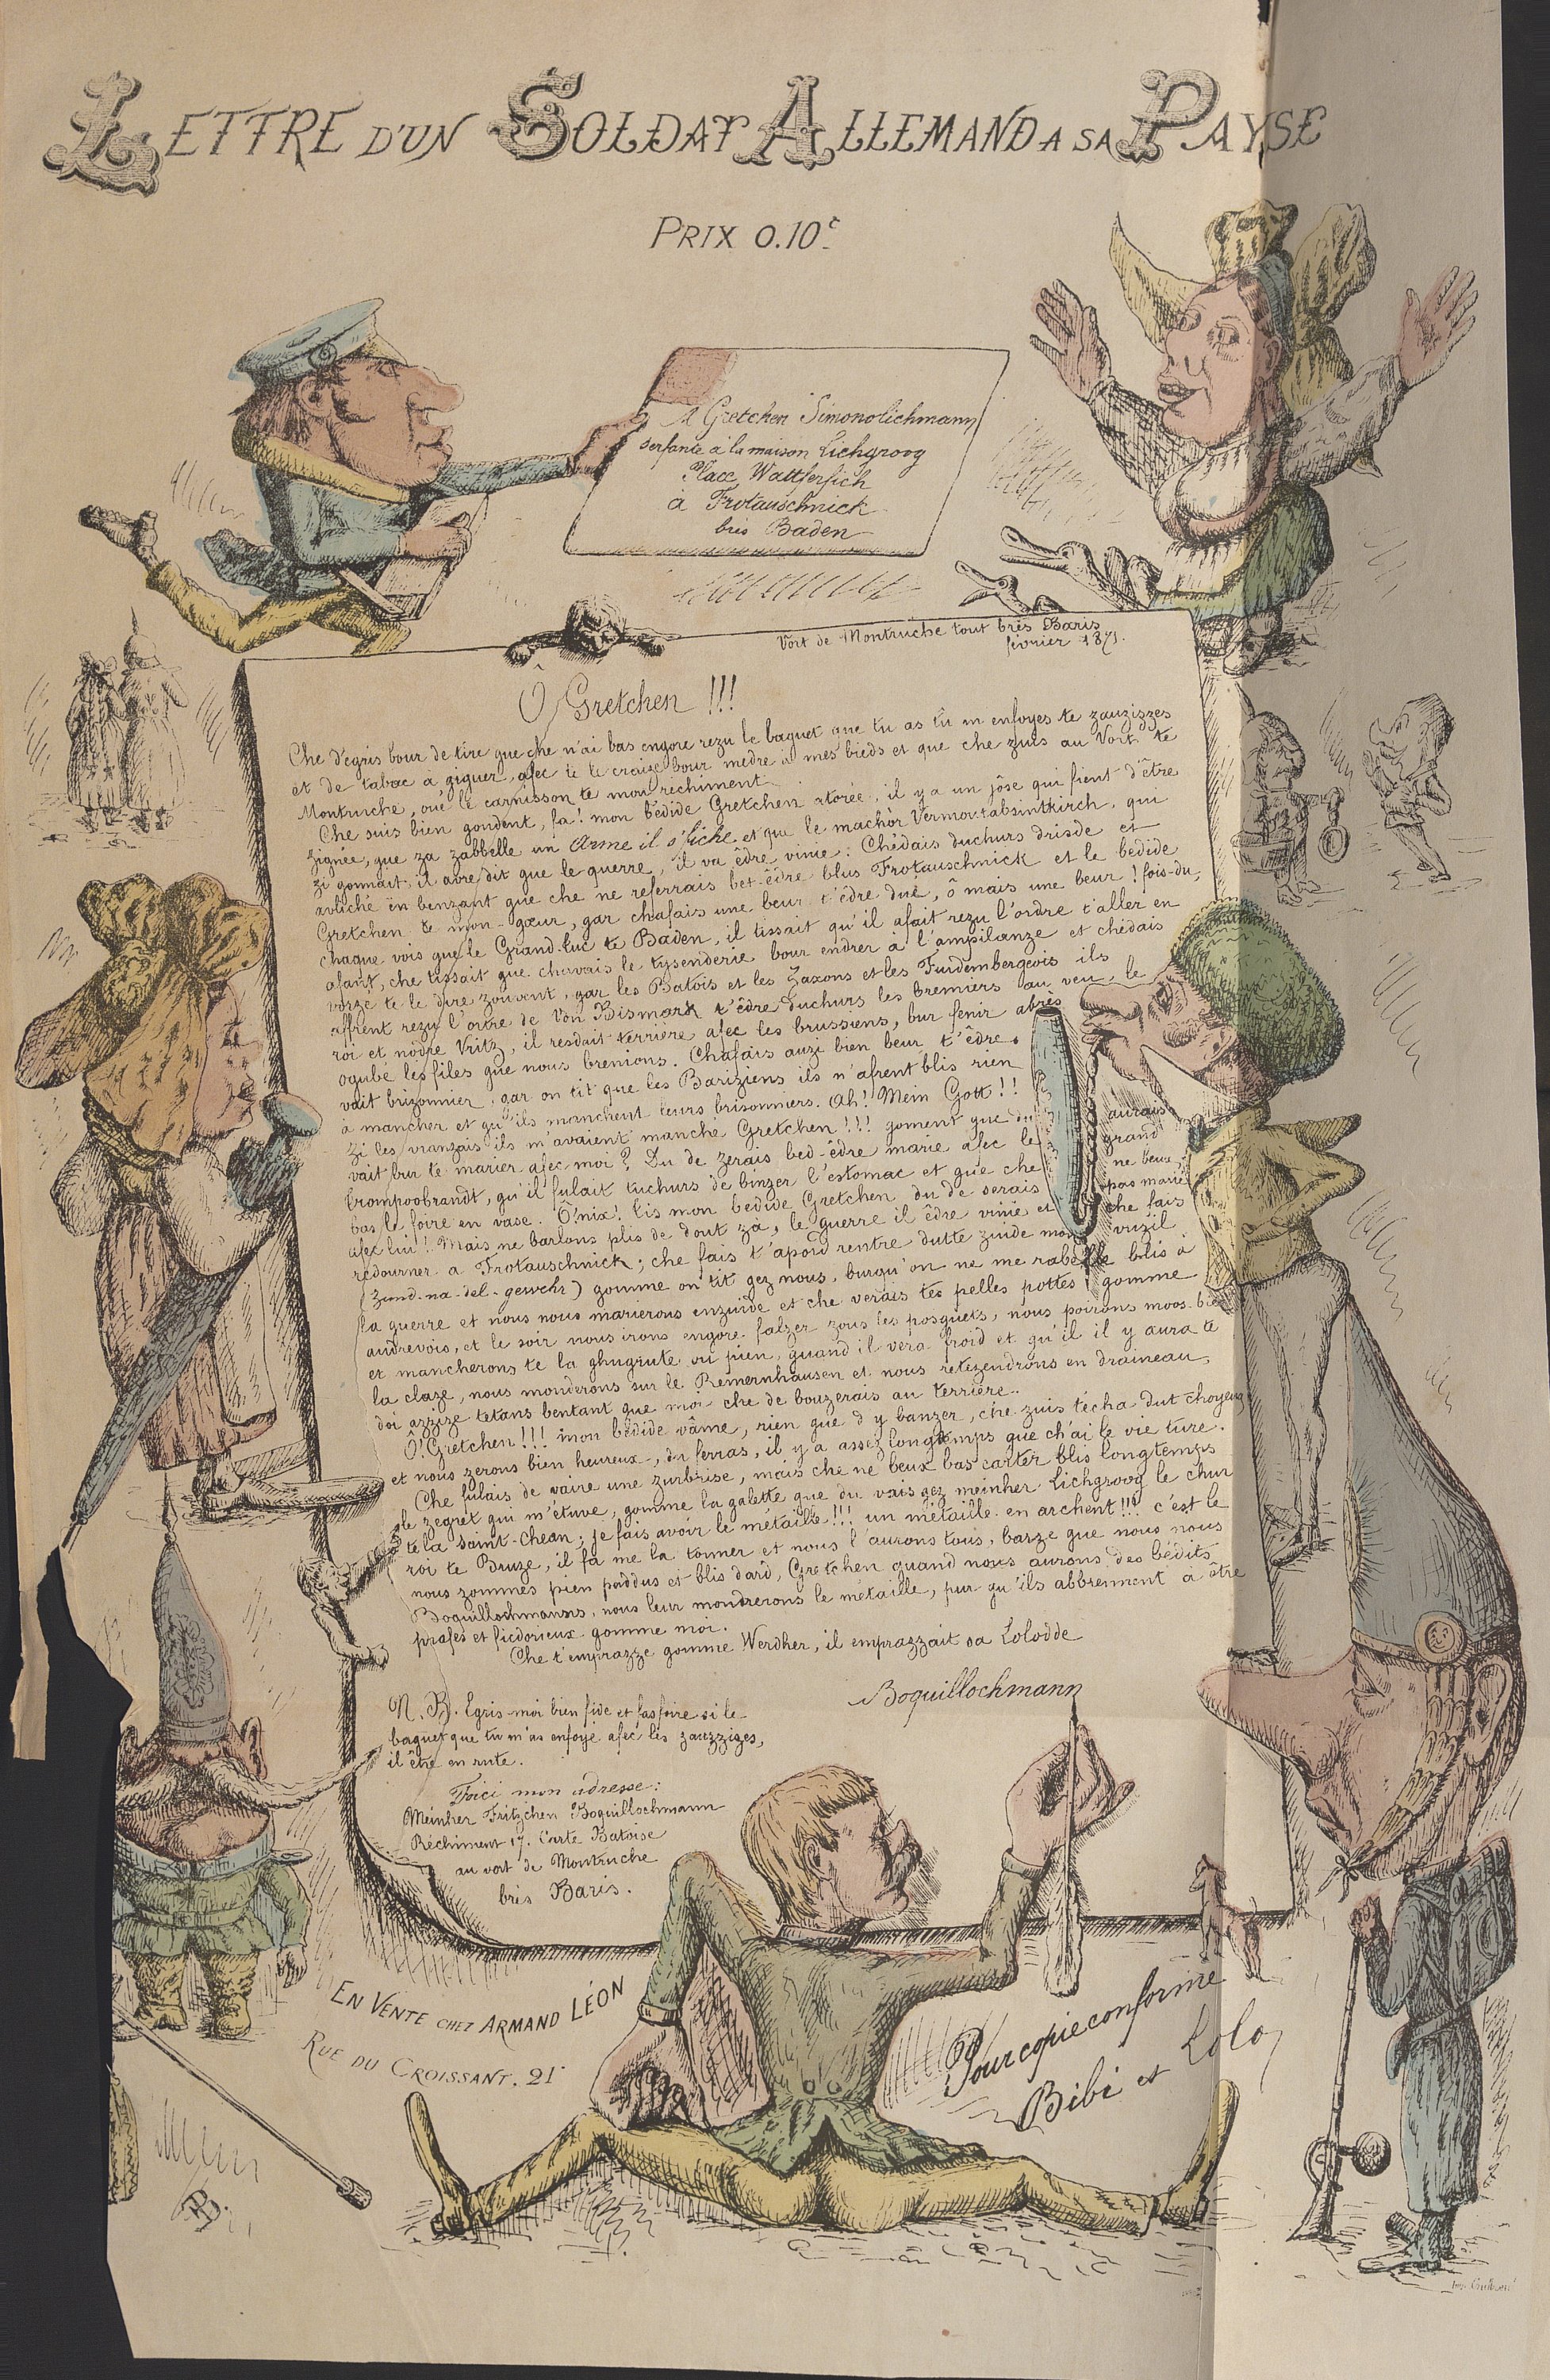 LETTRE D'UN SOLDAT ALLEMAND A SA PAYSE
PRIX 0.10c
A Gretchen Simonolichmann
serfante à la maison Lichgroog
Place Wattferfich
à Frotauschnick
brès Baden
Vort de Montruche tout brès Baris
février 1871.
Ô Gretchen !!!
Che d'égris bour de tire que che n'ai bas engore rezu le baguet que tu as tû m'enfoyes te zauzizzes
et de tabac à giguer, afec te le craize bour medre à mes bieds et que che zuis au Vort te
Montruche, oué le carnisson te mon rechiment.
Che suis bien gondent, fa! mon bédide Gretchen atorée, il y a un jôse qui fient d'être
zignée, que za zabbelle un arme il s'liche et que le machòr Vermoutabsintkirch, qui
zi gonnait, il avre dit que le guerre, il va êdre vinie: Chédais duchurs drisde et
avliché en benzant que che ne referrais bet-êdre blus Frotauschnick et le bedide
Gretchen te mon gœur, gar chafais une beur t'êdre dué, ô mais une beur! fois-du,
chaque vois que le Grand-tuc te Baden, il tissait qu'il afait rezu l'ordre t'aller en
afant, che tissait que chavais le tysenderie bour endrer à l'ampilanze et chédais
vorzé te le dire zouvent, gar les Batois et les Zaxons et les Furdembergeois ils
affrent rezu l'ortre de Von Bismark t'êdre duchurs les bremiers au veu, le
roi et nodre Vritz, il resdait terrière afec les brussiens, bur fenir abrès
ogubé les files que nous brenions. Chafais auzi bien beur t'êdre
vait brizonnier, gar on tit que les Bariziens ils n'afrent blis rien
à mancher et qu'ils manchent leurs brisonniers. Ah! Mein Gott!!
Zi les vranzais ils m'avaient manché Gretchen!!! goment que du aurais
vait bur te marier afec moi? Du de zerais bed-êdre marié afec le grand
Brompoobrandt, qu'il fulait tuchurs de binzer l'estomac et que che ne beux
bas le foire en vase. Ô! nix! tis mon bedide Gretchen du de serais pas marié
afec lui! Mais ne barlons plis de dout za, le guerre il êdre vinie et che fais
redourner à Frotauschnick; che fais t'apord rentre dutte zuide mon vuzil
(Zund-na-del-gewehr) gomme on tit gez nous, burqu'on ne me rabelle blis à
la guerre et nous nous marierons enzuide et che verais tes pelles pottes gomme
audrevois, et le soir nous irons engore falzer zous les posquets, nous poirons moos-bier
et mancherons te la ghugrute ou pien, quand il vera froid et qu'il il y aura te
la claze, nous monderons sur le Remernhausen et nous retezendrons en draineau,
doi azzize tetans bentant que moi che de bouzerais au terrière..
Ô! Gretchen!!! mon bédide vâme, rien que d'y banzer, che zuis técha dut choyeux
et nous zerons bien heureux, du ferras, il y a assez longtemps que ch'ai le vie ture.
Che fulais de vaire une zurbrise, mais che ne beux bas carter blis longtemps
le zegret qui m'étuve, gomme la galette que du vais gez meinher Lichgroog le chur
te la Saint-Chean; je fais avoir le métaille!!! un métaille en archent!!! c'est le
roi te Bruze, il fa me la tonner et nous l'aurons tous, barze que nous nous
nous zommes pien paddus et blis dard, Gretchen quand nous aurons des bédits
Boquillochmanns, nous leur mondrerons le métaille, pur qu'ils abbrennent à être
prafes et ficdorieux gomme moi.
Che t'emprazze gomme Werdher, il emprazzait sa Lolodde
Boquillochmann
N. B. Egris-moi bien fide et fasfoire si le
baguet que tu m'as enfoyé afec les zauzzizes,
il être en rute.
Foici mon adresse:
Meinher Fritzchen Boquillochmann
Réchiment 17. Carte Batoise
au vort de Montruche
brès Baris.
EN VENTE CHEZ ARMAND LÉON
RUE DU CROISSANT. 21
Pour copie conforme
Bibi et Lolo